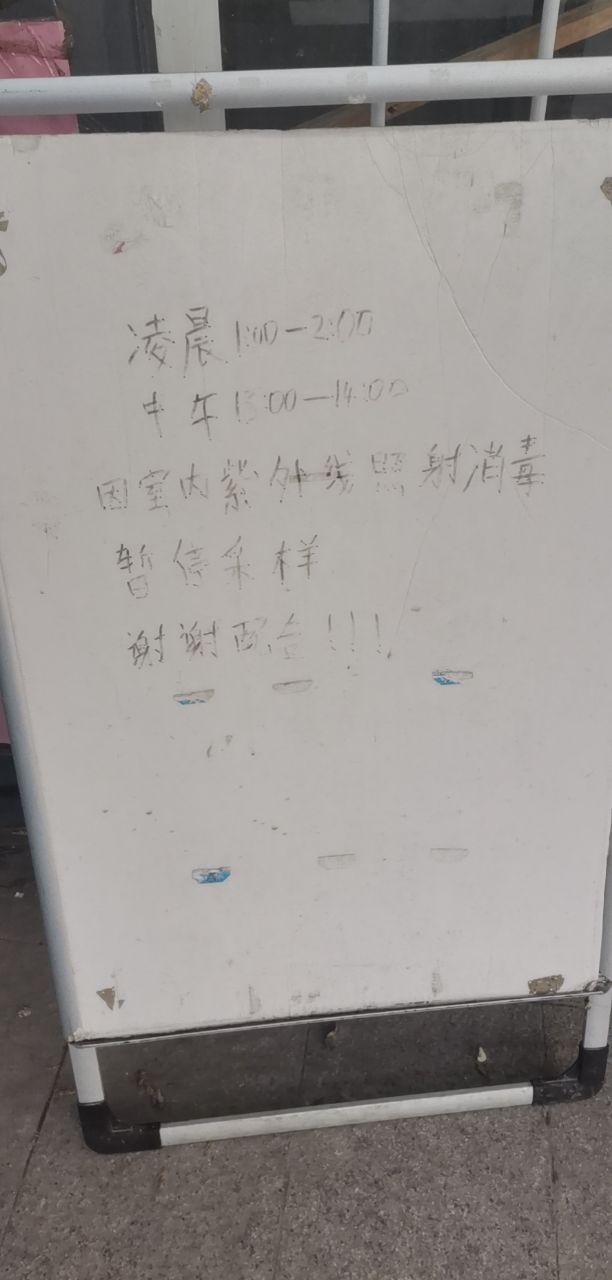 凌晨1:00—2:00
中午13:00—14:00
因室内紫外线照射消毒
暂停采样
谢谢配合!!!